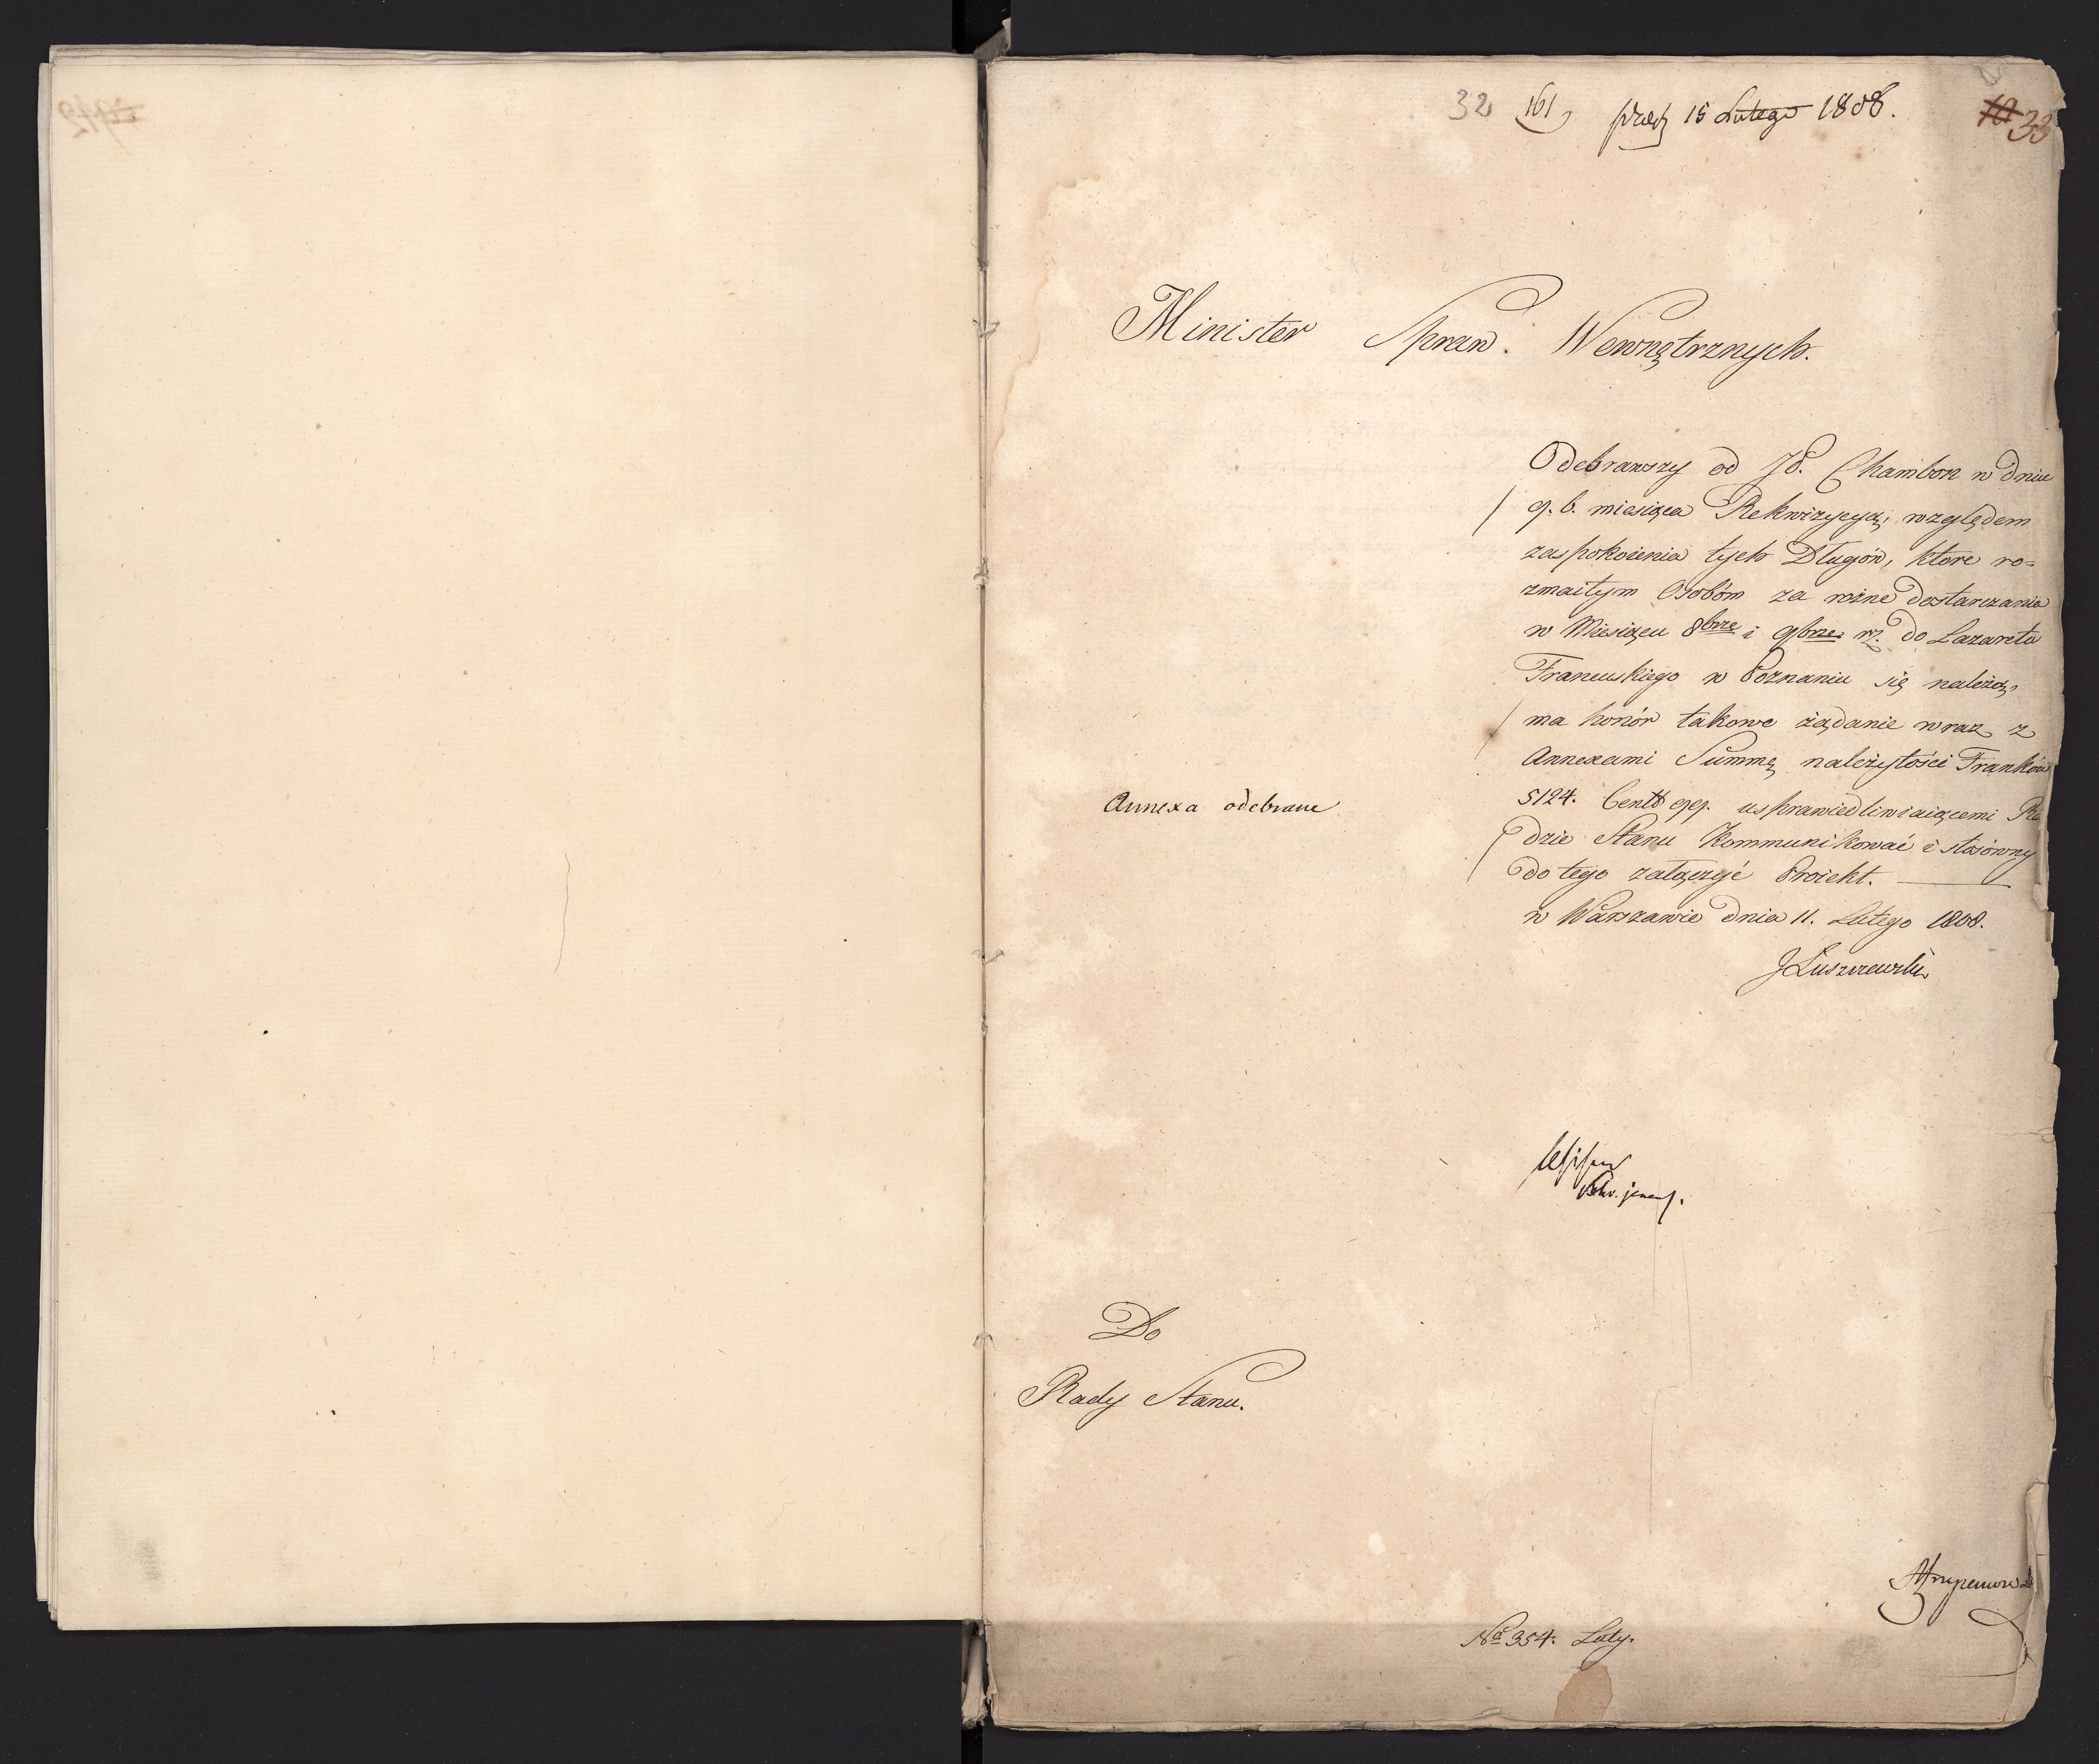 32 161, 15 Lutego 1808. 10 33
Minister Spraw. Wewnątrznych.
Odebrawszy od JP. Chambon w Dniu
9. b. miesiąca Rekwizycyą, względem
zaspokoienia tych Długów, ktore ro=
zmaitym Osobóm za rożne dostarczania
w Miesiącu 8brze i 9brze do Lazaretu
Francuskiego w Poznaniu się należą,
ma honór takowe żądanie wraz z
Annexami Summę należytości Franków
5124. Cent 99. usprawiedliwiaiącemi Ra
dzie Stanu Kommunikować i stosowny
do tego załączyć Proiekt.
w Warszawie Dnia 11. Lutego 1808.
JŁuszczewski
Annexa odebrane
Do
Rady Stanu.
No 354. Luty.